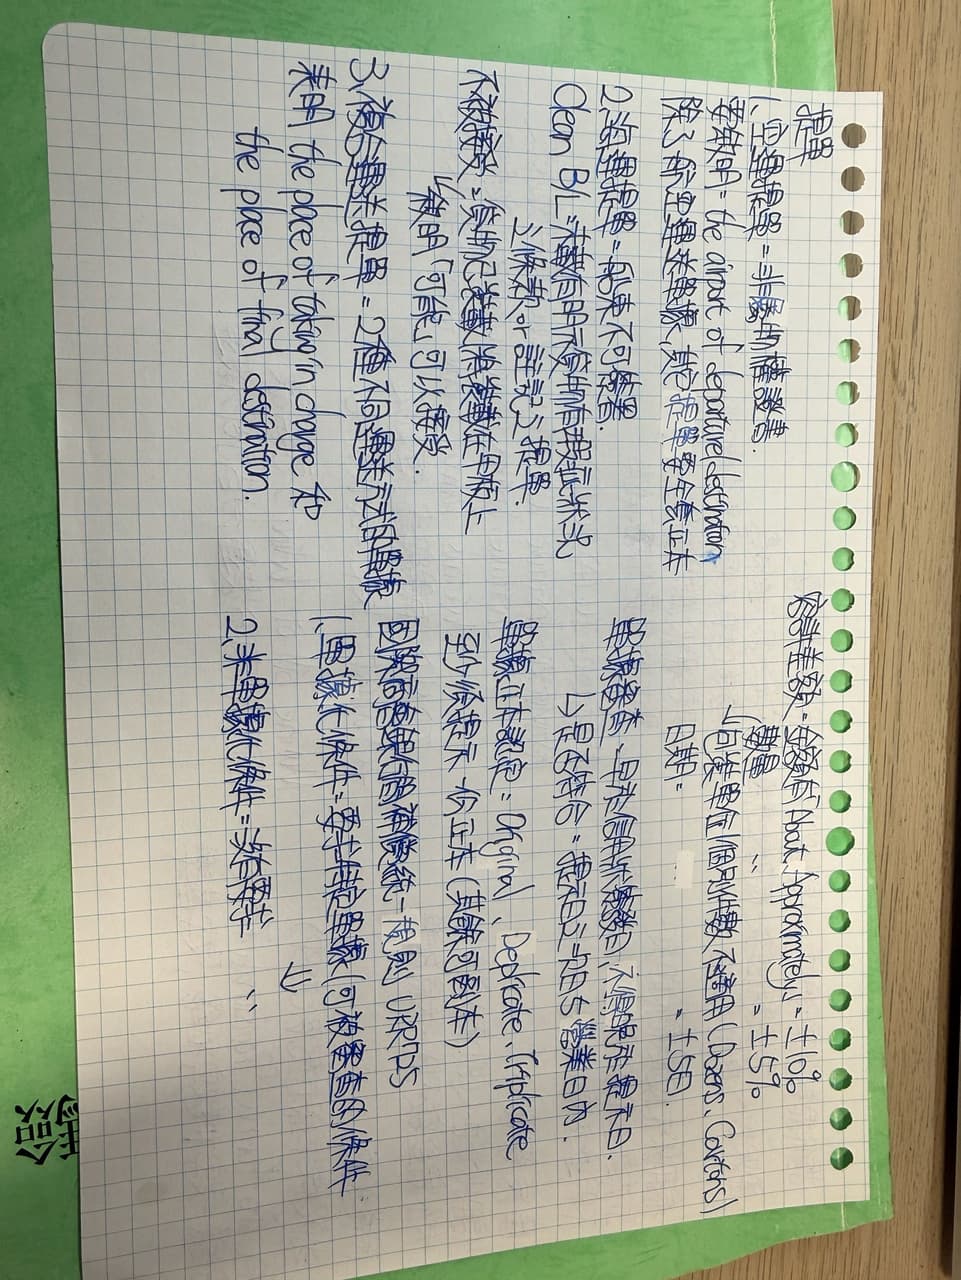 提單
1. 空運提單=非屬物權證書.
要敘明= the airport of departure/destination
除了航空運送單據,其它提單要全套正本
2. 海運提單=船東不可簽署
Clean B/L=未載有明示貨物有瑕疵狀況
之條款or註記之提單.
不被接受=貨物已裝載 將裝載在甲板上
↳敘明「可能」可以接受.
3. 複合運送提單=2種不同運送方式的單據
表明 the place of taking in charge 和
the place of final destination.
容許差數=金額有「About、Approximately」= ±10%
數量 " = ±5%
↳(但按單位/個別件數不適用(Dozens、Cartons)
日期= " = ±5日.
單據審查=早於信用狀 不得晚於提示日.
↳是否符合=提示日之次日5營業日內.
單據正本規定= Original、Deplicate、Triplicate
至少須提示一份正本(其餘可副本)
國際商會 補償統一規則 URR725
1. 單據化條件=要求特定單據(可被審查的條件
2. 非單據化條件= "